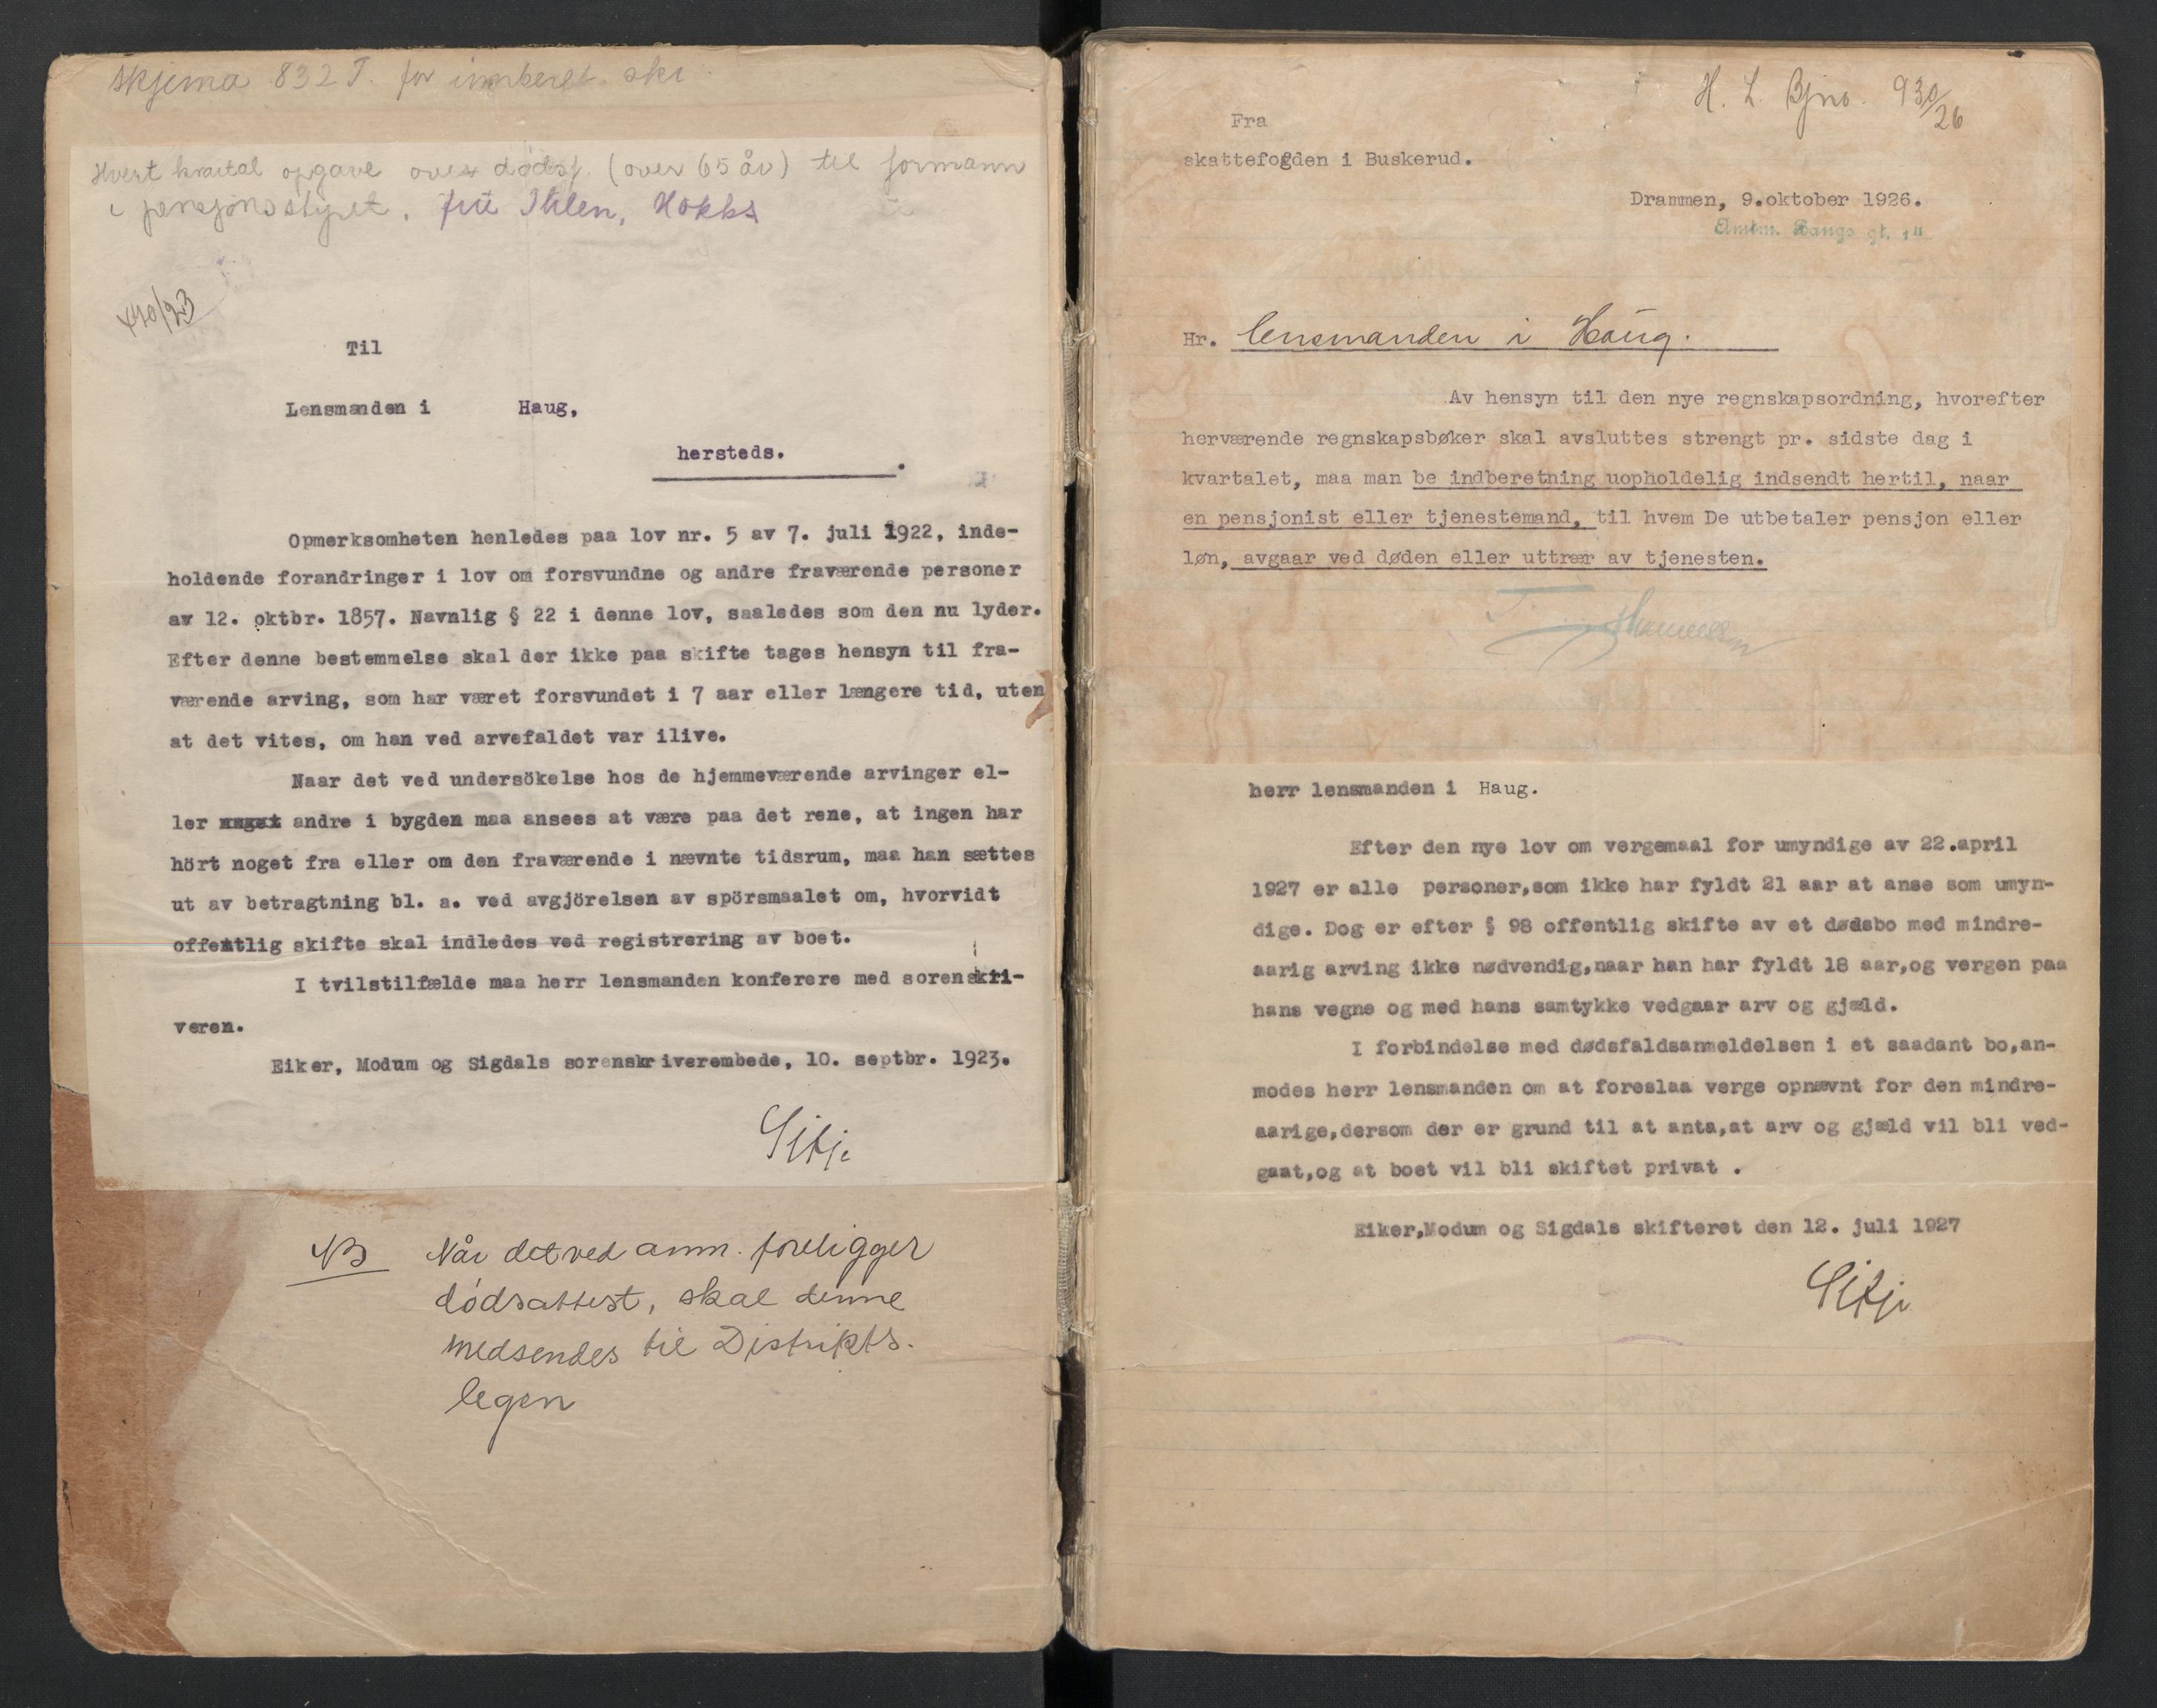 skjema 832 T. for innberet. skr
Hvert kvartal opgave over dødsf. (over 65 år) til formann
i pensjonsstyret, frü Ihlen, Hokks
440/23
Til
Lensmanden i Haug,
hersteds.
Opmerksomheten henledes paa lov nr. 5 av 7. juli 1922, inde-
holdende forandringer i lov om forsvundne og andre fraværende personer
av 12. oktbr. 1857. Navnlig § 22 i denne lov, saaledes som den nu lyder.
Efter denne bestemmelse skal der ikke paa skifte tages hensyn til fra-
værende arving, som har været forsvundet i 7 aar eller længere tid, uten
at det vites, om han ved arvefaldet var ilive.
Naar det ved undersökelse hos de hjemmeværende arvinger el-
ler andre i bygden maa ansees at være paa det rene, at ingen har
hört noget fra eller om den fraværende i nævnte tidsrum, maa han sættes
ut av betragtning bl. a. ved avgjörelsen av spörsmaalet om, hvorvidt
offentlig skifte skal indledes ved registrering av boet.
I tvilstilfælde maa herr lensmanden konferere med sorenskri-
veren.
Eiker, Modum og Sigdals sorenskriverembede, 10. septbr. 1923.
NB Når det ved anm. foreligger
dödsattest, skal denne
medsendes til Distrikts-
legen
H. L. Bjno. 930/26
Fra
skattefogden i Buskerud.
Drammen, 9.oktober 1926.
Amtm. Bangs gt. 1 II
Hr. lensmanden i Haug.
Av hensyn til den nye regnskapsordning, hvorefter
herværende regnskapsbøker skal avsluttes strengt pr. sidste dag i
kvartalet, maa man be indberetning uopholdelig indsendt hertil, naar
en pensjonist eller tjenestemand, til hvem De utbetaler pensjon eller
løn, avgaar ved døden eller uttrær av tjenesten.
herr lensmanden i Haug.
Efter den nye lov om vergemaal for umyndige av 22.april
1927 er alle personer,som ikke har fyldt 21 aar at anse som umyn-
dige. Dog er efter § 98 offentlig skifte av et dødsbo med mindre-
aarig arving ikke nødvendig,naar han har fyldt 18 aar,og vergen paa
hans vegne og med hans samtykke vedgaar arv og gjæld.
I forbindelse med dødsfaldsanmeldelsen i et saadant bo,an-
modes herr lensmanden om at foreslaa verge opnævnt for den mindre-
aarige,dersom der er grund til at anta,at arv og gjæld vil bli ved-
gaat,og at boet vil bli skiftet privat .
Eiker,Modum og Sigdals skifteret den 12. juli 1927